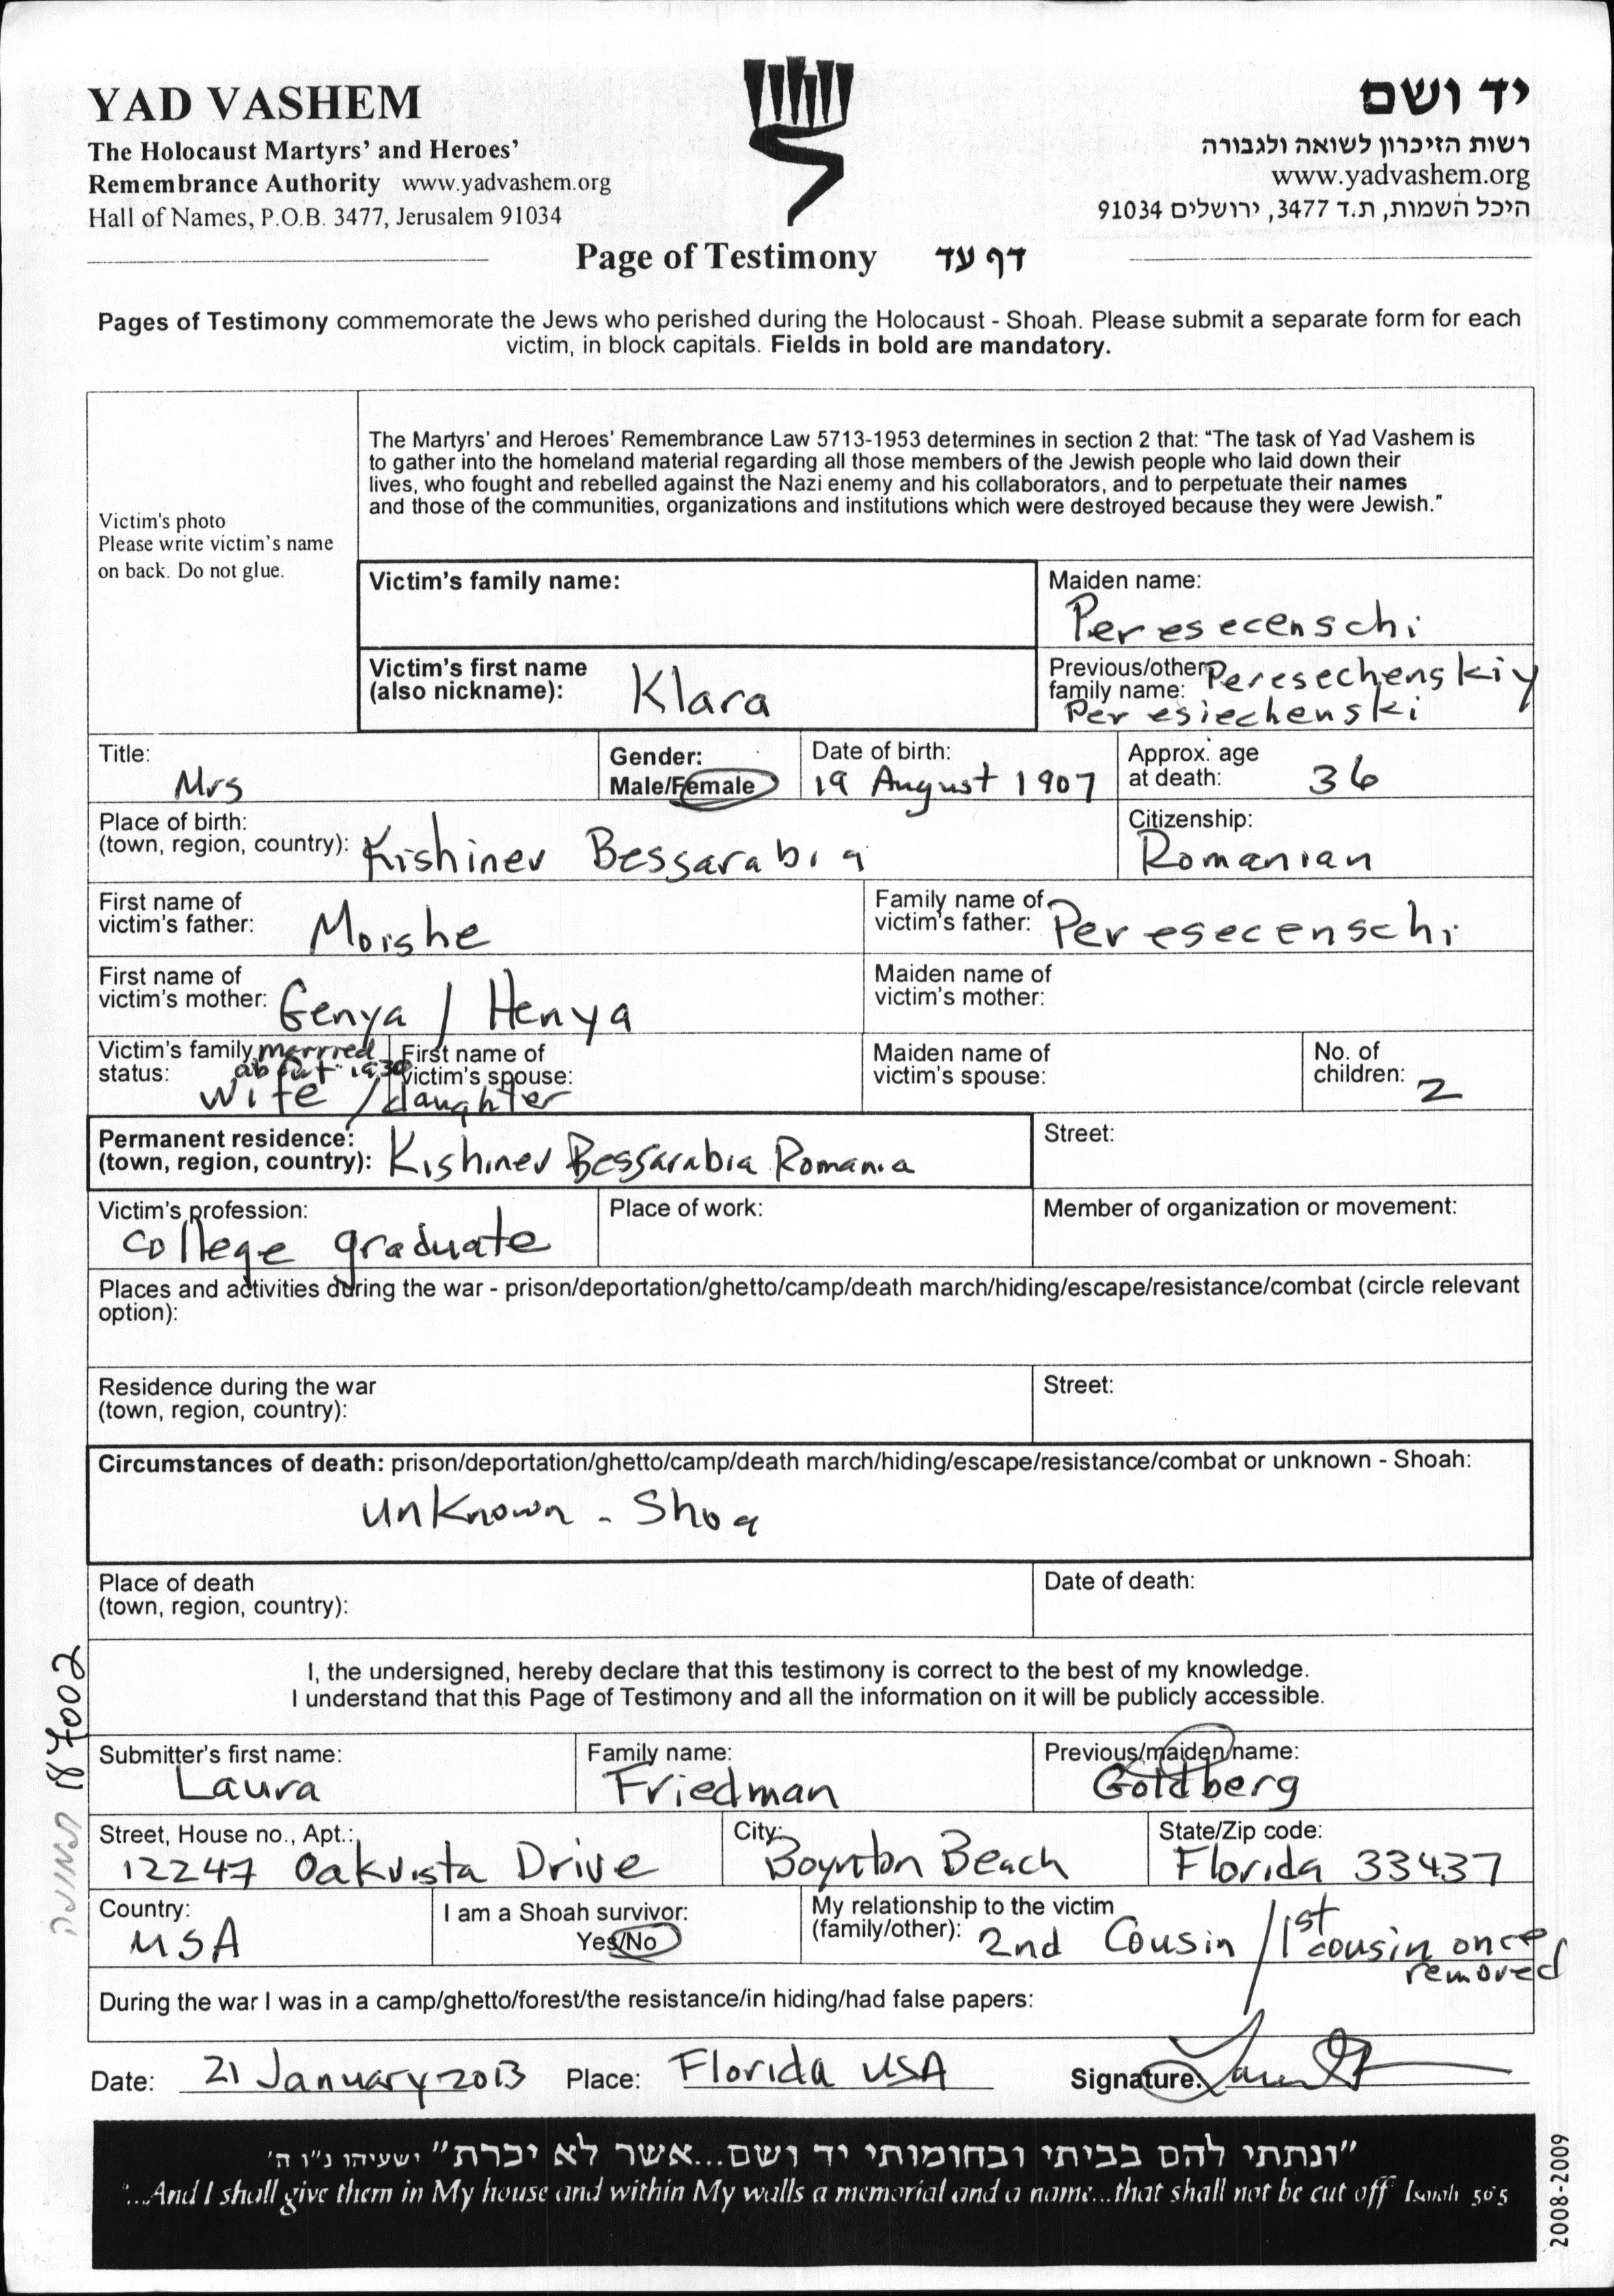 YAD VASHEM
The Holocaust Martyrs' and Heroes'
Remembrance Authority www.yadvashem.org
Hall of Names, P.O.B. 3477, Jerusalem 91034
יד ושם
רשות הזיכרון לשואה ולגבורה
www.yadvashem.org
היכל השמות, ת.ד 3477, ירושלים 91034
Page of Testimony דף עד
Pages of Testimony commemorate the Jews who perished during the Holocaust - Shoah. Please submit a separate form for each
victim, in block capitals. Fields in bold are mandatory.
Victim's photo
Please write victim's name
on back. Do not glue.
The Martyrs' and Heroes' Remembrance Law 5713-1953 determines in section 2 that: "The task of Yad Vashem is
to gather into the homeland material regarding all those members of the Jewish people who laid down their
lives, who fought and rebelled against the Nazi enemy and his collaborators, and to perpetuate their names
and those of the communities, organizations and institutions which were destroyed because they were Jewish."
Victim's family name:
Maiden name:
Peresecenschi
Victim's first name
(also nickname): Klara
Previous/other Peresechenskiy
family name:
Peresiechenski
Title:
Mrs
Gender:
Male/Female
Date of birth:
19 August 1907
Approx. age
at death: 36
Place of birth:
(town, region, country): Kishinev Bessarabia
Citizenship:
Romanian
First name of
victim's father: Moishe
Family name of
victim's father: Peresecenschi
First name of
victim's mother: Genya / Henya
Maiden name of
victim's mother:
Victim's family married
status: about 1930
wife / daughter
First name of
victim's spouse:
Maiden name of
victim's spouse:
No. of
children: 2
Permanent residence:
(town, region, country): Kishinev Bessarabia Romania
Street:
Victim's profession:
college graduate
Place of work:
Member of organization or movement:
Places and activities during the war - prison/deportation/ghetto/camp/death march/hiding/escape/resistance/combat (circle relevant
option):
Residence during the war
(town, region, country):
Street:
Circumstances of death: prison/deportation/ghetto/camp/death march/hiding/escape/resistance/combat or unknown - Shoah:
unknown - Shoa
Place of death
(town, region, country):
Date of death:
I, the undersigned, hereby declare that this testimony is correct to the best of my knowledge.
I understand that this Page of Testimony and all the information on it will be publicly accessible.
Submitter's first name:
Laura
Family name:
Friedman
Previous/maiden name:
Goldberg
Street, House no., Apt.:
12247 Oakvista Drive
City:
Boynton Beach
State/Zip code:
Florida 33437
Country:
USA
I am a Shoah survivor:
Yes/No
My relationship to the victim
(family/other): 2nd Cousin / 1st cousin once
removed
During the war I was in a camp/ghetto/forest/the resistance/in hiding/had false papers:
Date: 21 January 2013 Place: Florida USA Signature:
"ונתתי להם בביתי ובחומותי יד ושם...אשר לא יכרת" ישעיהו נ"ו ה'
"...And I shall give them in My house and within My walls a memorial and a name...that shall not be cut off" Isaiah 56:5
2008-2009
187002